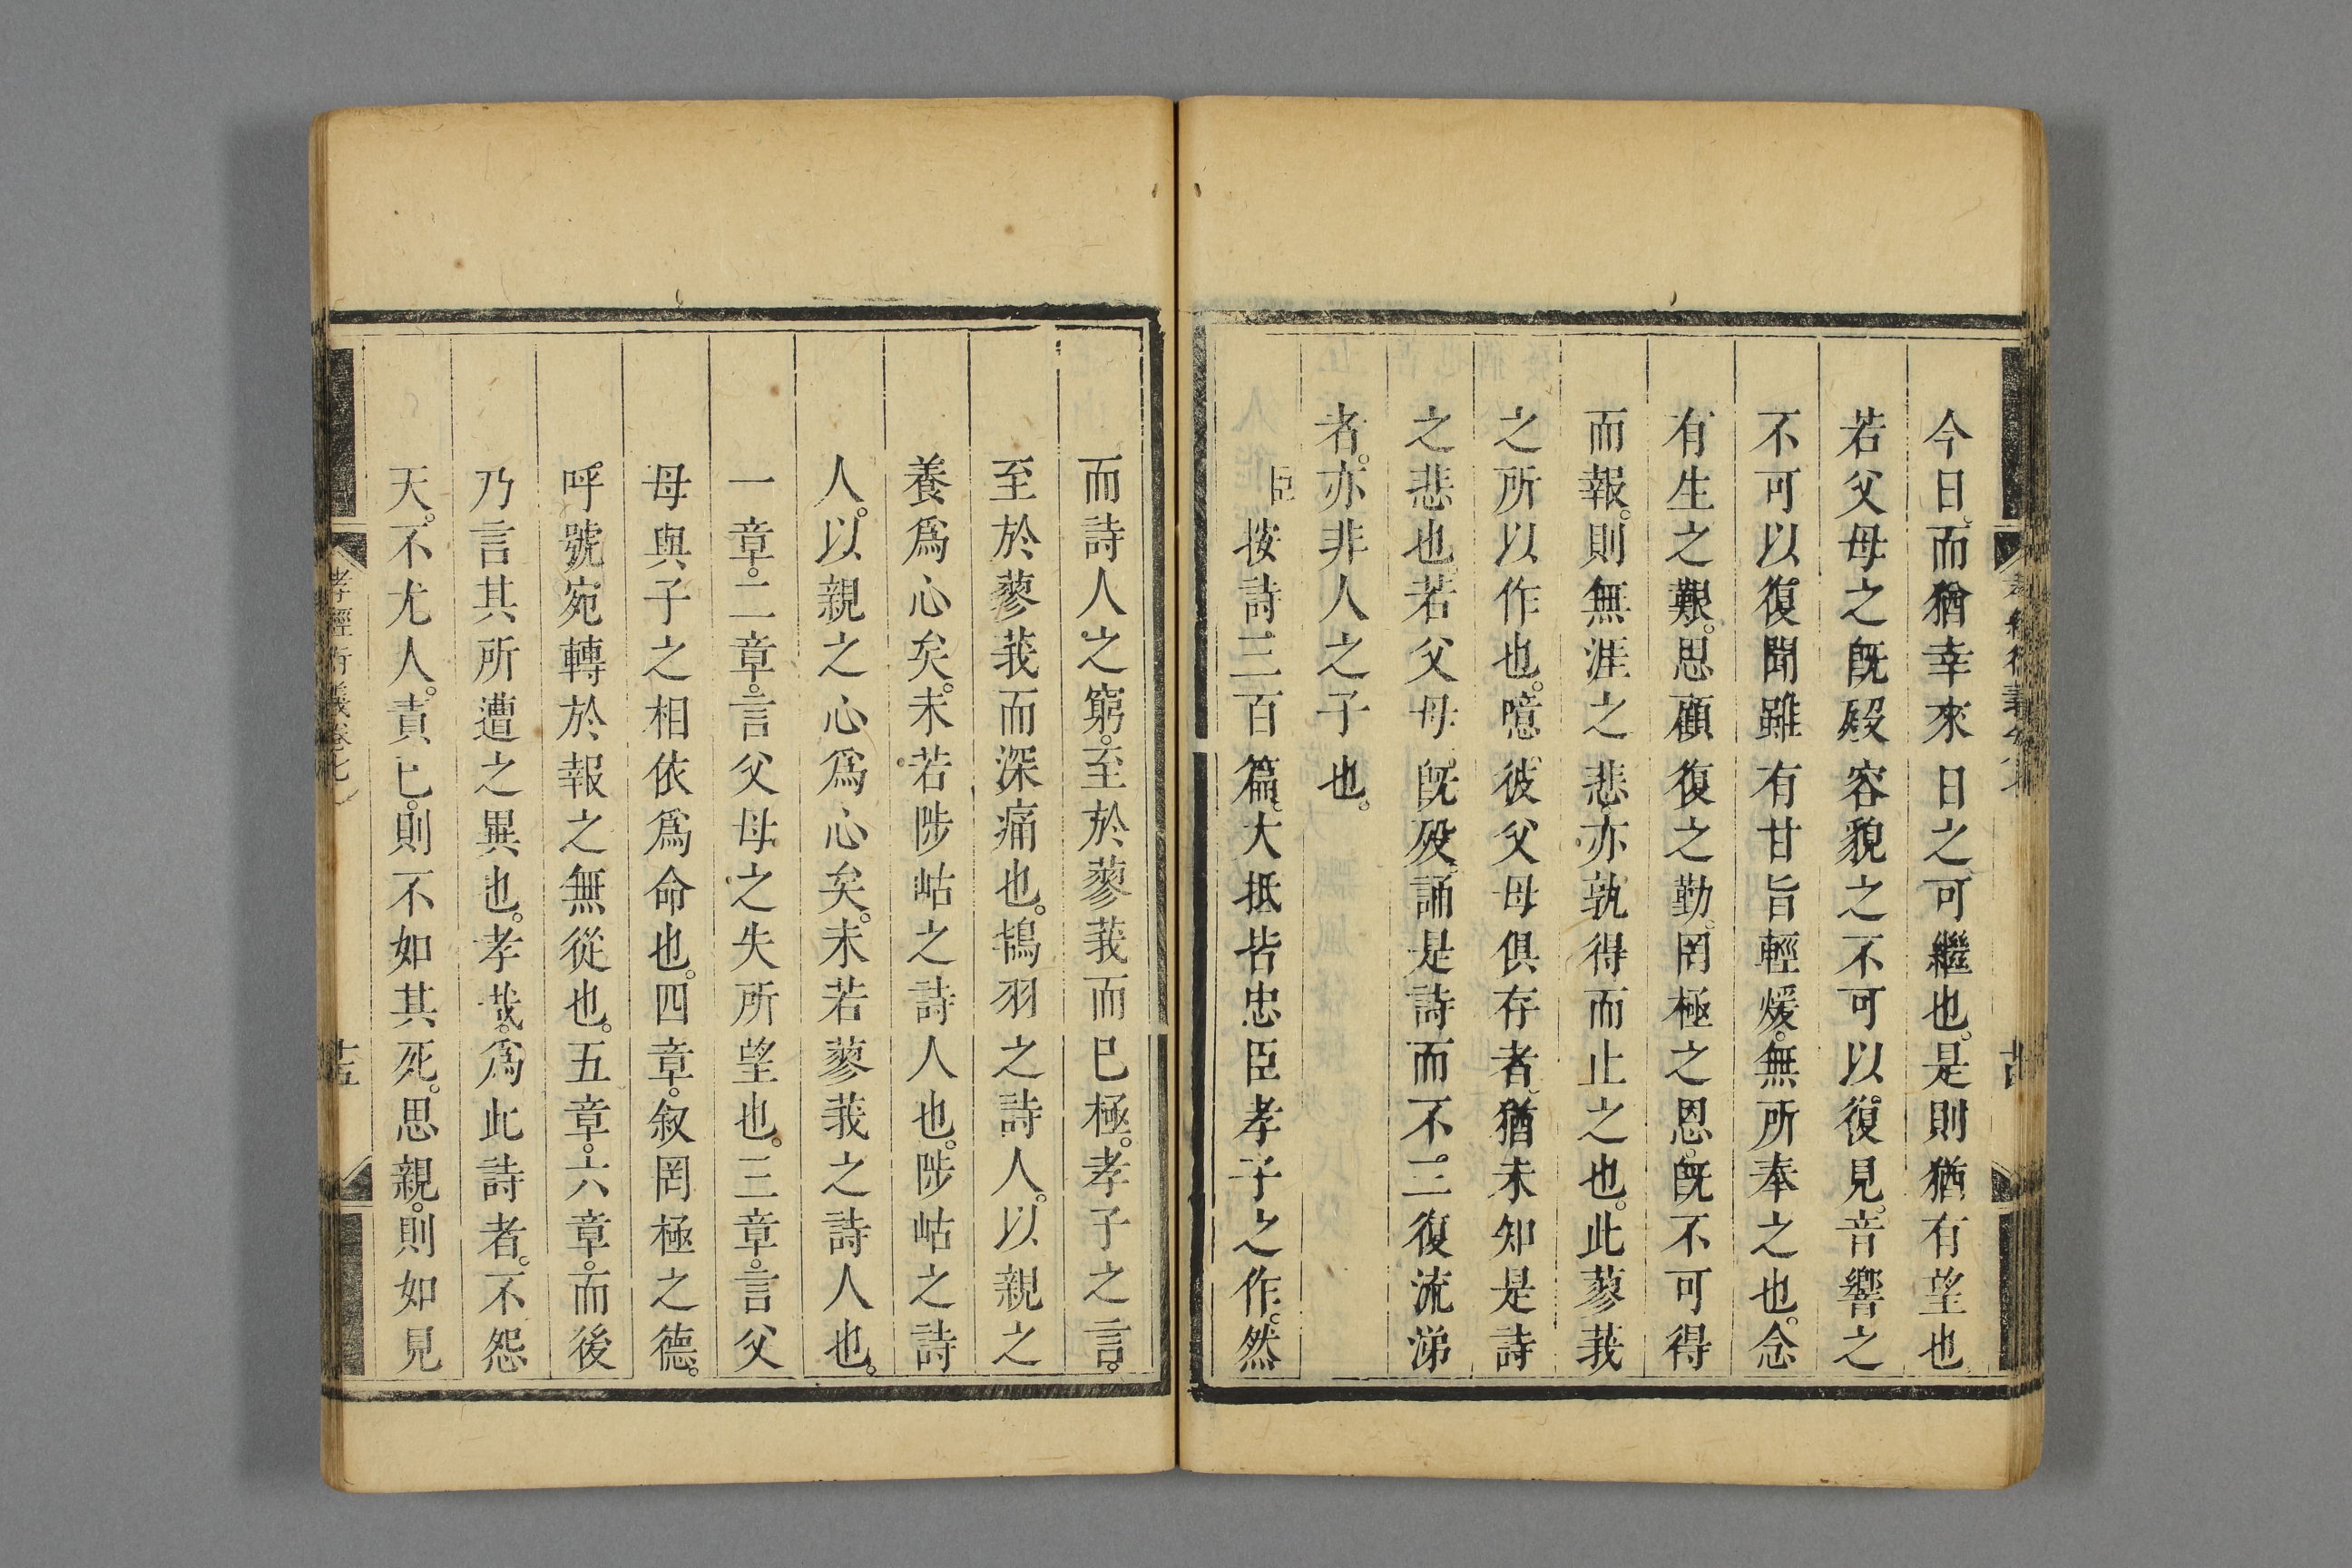 今日。而猶幸來日之可繼也。是則猶有望也
若父母之旣歿容貌之不可以復見。音響之
不可以復聞雖有甘旨輕煖。無所奉之也。念
有生之艱。思顧復之勤。罔極之恩。旣不可得
而報。則無涯之悲亦孰得而止之也。此蓼莪
之所以作也。噫。彼父母俱存者。猶未知是詩
之悲也。若父母旣歿。誦是詩而不三復流涕
者。亦非人之子也。
臣按詩三百篇。大抵皆忠臣孝子之作。然
而詩人之窮。至於蓼莪而已極。孝子之言。
至於蓼莪而深痛也。鴇羽之詩人。以親之
養爲心矣。未若陟岵之詩人也。陟岵之詩
人。以親之心爲心矣。未若蓼莪之詩人也。
一章。二章。言父母之失所望也。三章。言父
母與子之相依爲命也。四章。叙罔極之德。
呼號宛轉於報之無從也。五章。六章。而後
乃言其所遭之異也。孝哉。爲此詩者。不怨
天。不尤人。責已。則不如其死。思親。則如見
孝經衍義卷七